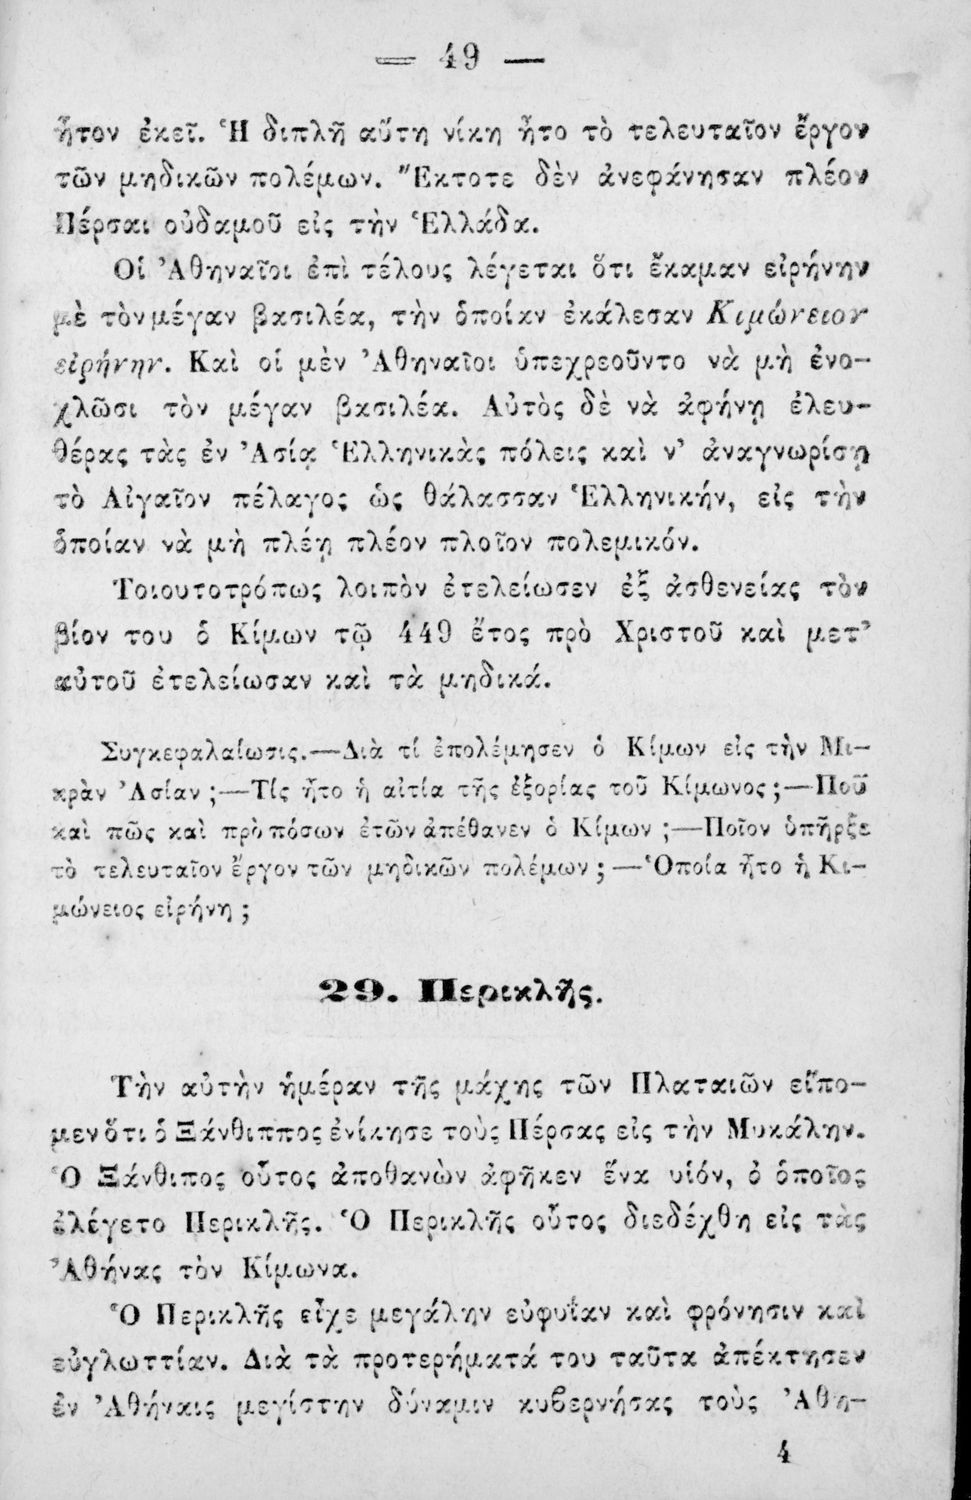 — 49 —
ἦτον ἐκεῖ. Ἡ διπλῆ αὕτη νίκη ἦτο τὸ τελευταῖον ἔργον
τῶν μηδικῶν πολέμων. Ἔκτοτε δὲν ἀνεφάνησαν πλέον
Πέρσαι οὐδαμοῦ εἰς τὴν Ἑλλάδα.
Οἱ Ἀθηναῖοι ἐπὶ τέλους λέγεται ὅτι ἔκαμαν εἰρήνην
μὲ τὸν μέγαν βασιλέα, τὴν ὁποίαν ἐκάλεσαν Κιμώνειον
εἰρήνην. Καὶ οἱ μὲν Ἀθηναῖοι ὑπεχρεοῦντο νὰ μὴ ἐνο-
χλῶσι τὸν μέγαν βασιλέα. Αὐτὸς δὲ νὰ ἀφήνῃ ἐλευ-
θέρας τὰς ἐν Ἀσίᾳ Ἑλληνικὰς πόλεις καὶ ν’ ἀναγνωρίσῃ
τὸ Αἰγαῖον πέλαγος ὡς θάλασσαν Ἑλληνικήν, εἰς τὴν
ὁποίαν νὰ μὴ πλέῃ πλέον πλοῖον πολεμικόν.
Τοιουτοτρόπως λοιπὸν ἐτελείωσεν ἐξ ἀσθενείας τὸν
βίον του ὁ Κίμων τῷ 449 ἔτος πρὸ Χριστοῦ καὶ μετ’
αὐτοῦ ἐτελείωσαν καὶ τὰ μηδικά.
Συγκεφαλαίωσις.—Διὰ τί ἐπολέμησεν ὁ Κίμων εἰς τὴν Μι-
κρὰν Ἀσίαν ;—Τίς ἦτο ἡ αἰτία τῆς ἐξορίας τοῦ Κίμωνος ;—Ποῦ
καὶ πῶς καὶ πρὸ πόσων ἐτῶν ἀπέθανεν ὁ Κίμων ;—Ποῖον ὑπῆρξε
τὸ τελευταῖον ἔργον τῶν μηδικῶν πολέμων ; —Ὁποία ἦτο ἡ Κι-
μώνειος εἰρήνη ;
29. Περικλῆς.
Τὴν αὐτὴν ἡμέραν τῆς μάχης τῶν Πλαταιῶν εἴπο-
μεν ὅτι ὁ Ξάνθιππος ἐνίκησε τοὺς Πέρσας εἰς τὴν Μυκάλην.
Ὁ Ξάνθιπος οὗτος ἀποθανὼν ἀφῆκεν ἕνα υἱόν, ὁ ὁποῖος
ἐλέγετο Περικλῆς. Ὁ Περικλῆς οὗτος διεδέχθη εἰς τὰς
Ἀθήνας τὸν Κίμωνα.
Ὁ Περικλῆς εἶχε μεγάλην εὐφυΐαν καὶ φρόνησιν καὶ
εὐγλωττίαν. Διὰ τὰ προτερήματά του ταῦτα ἀπέκτησεν
ἐν Ἀθήναις μεγίστην δύναμιν κυβερνήσας τοὺς Ἀθη-
4